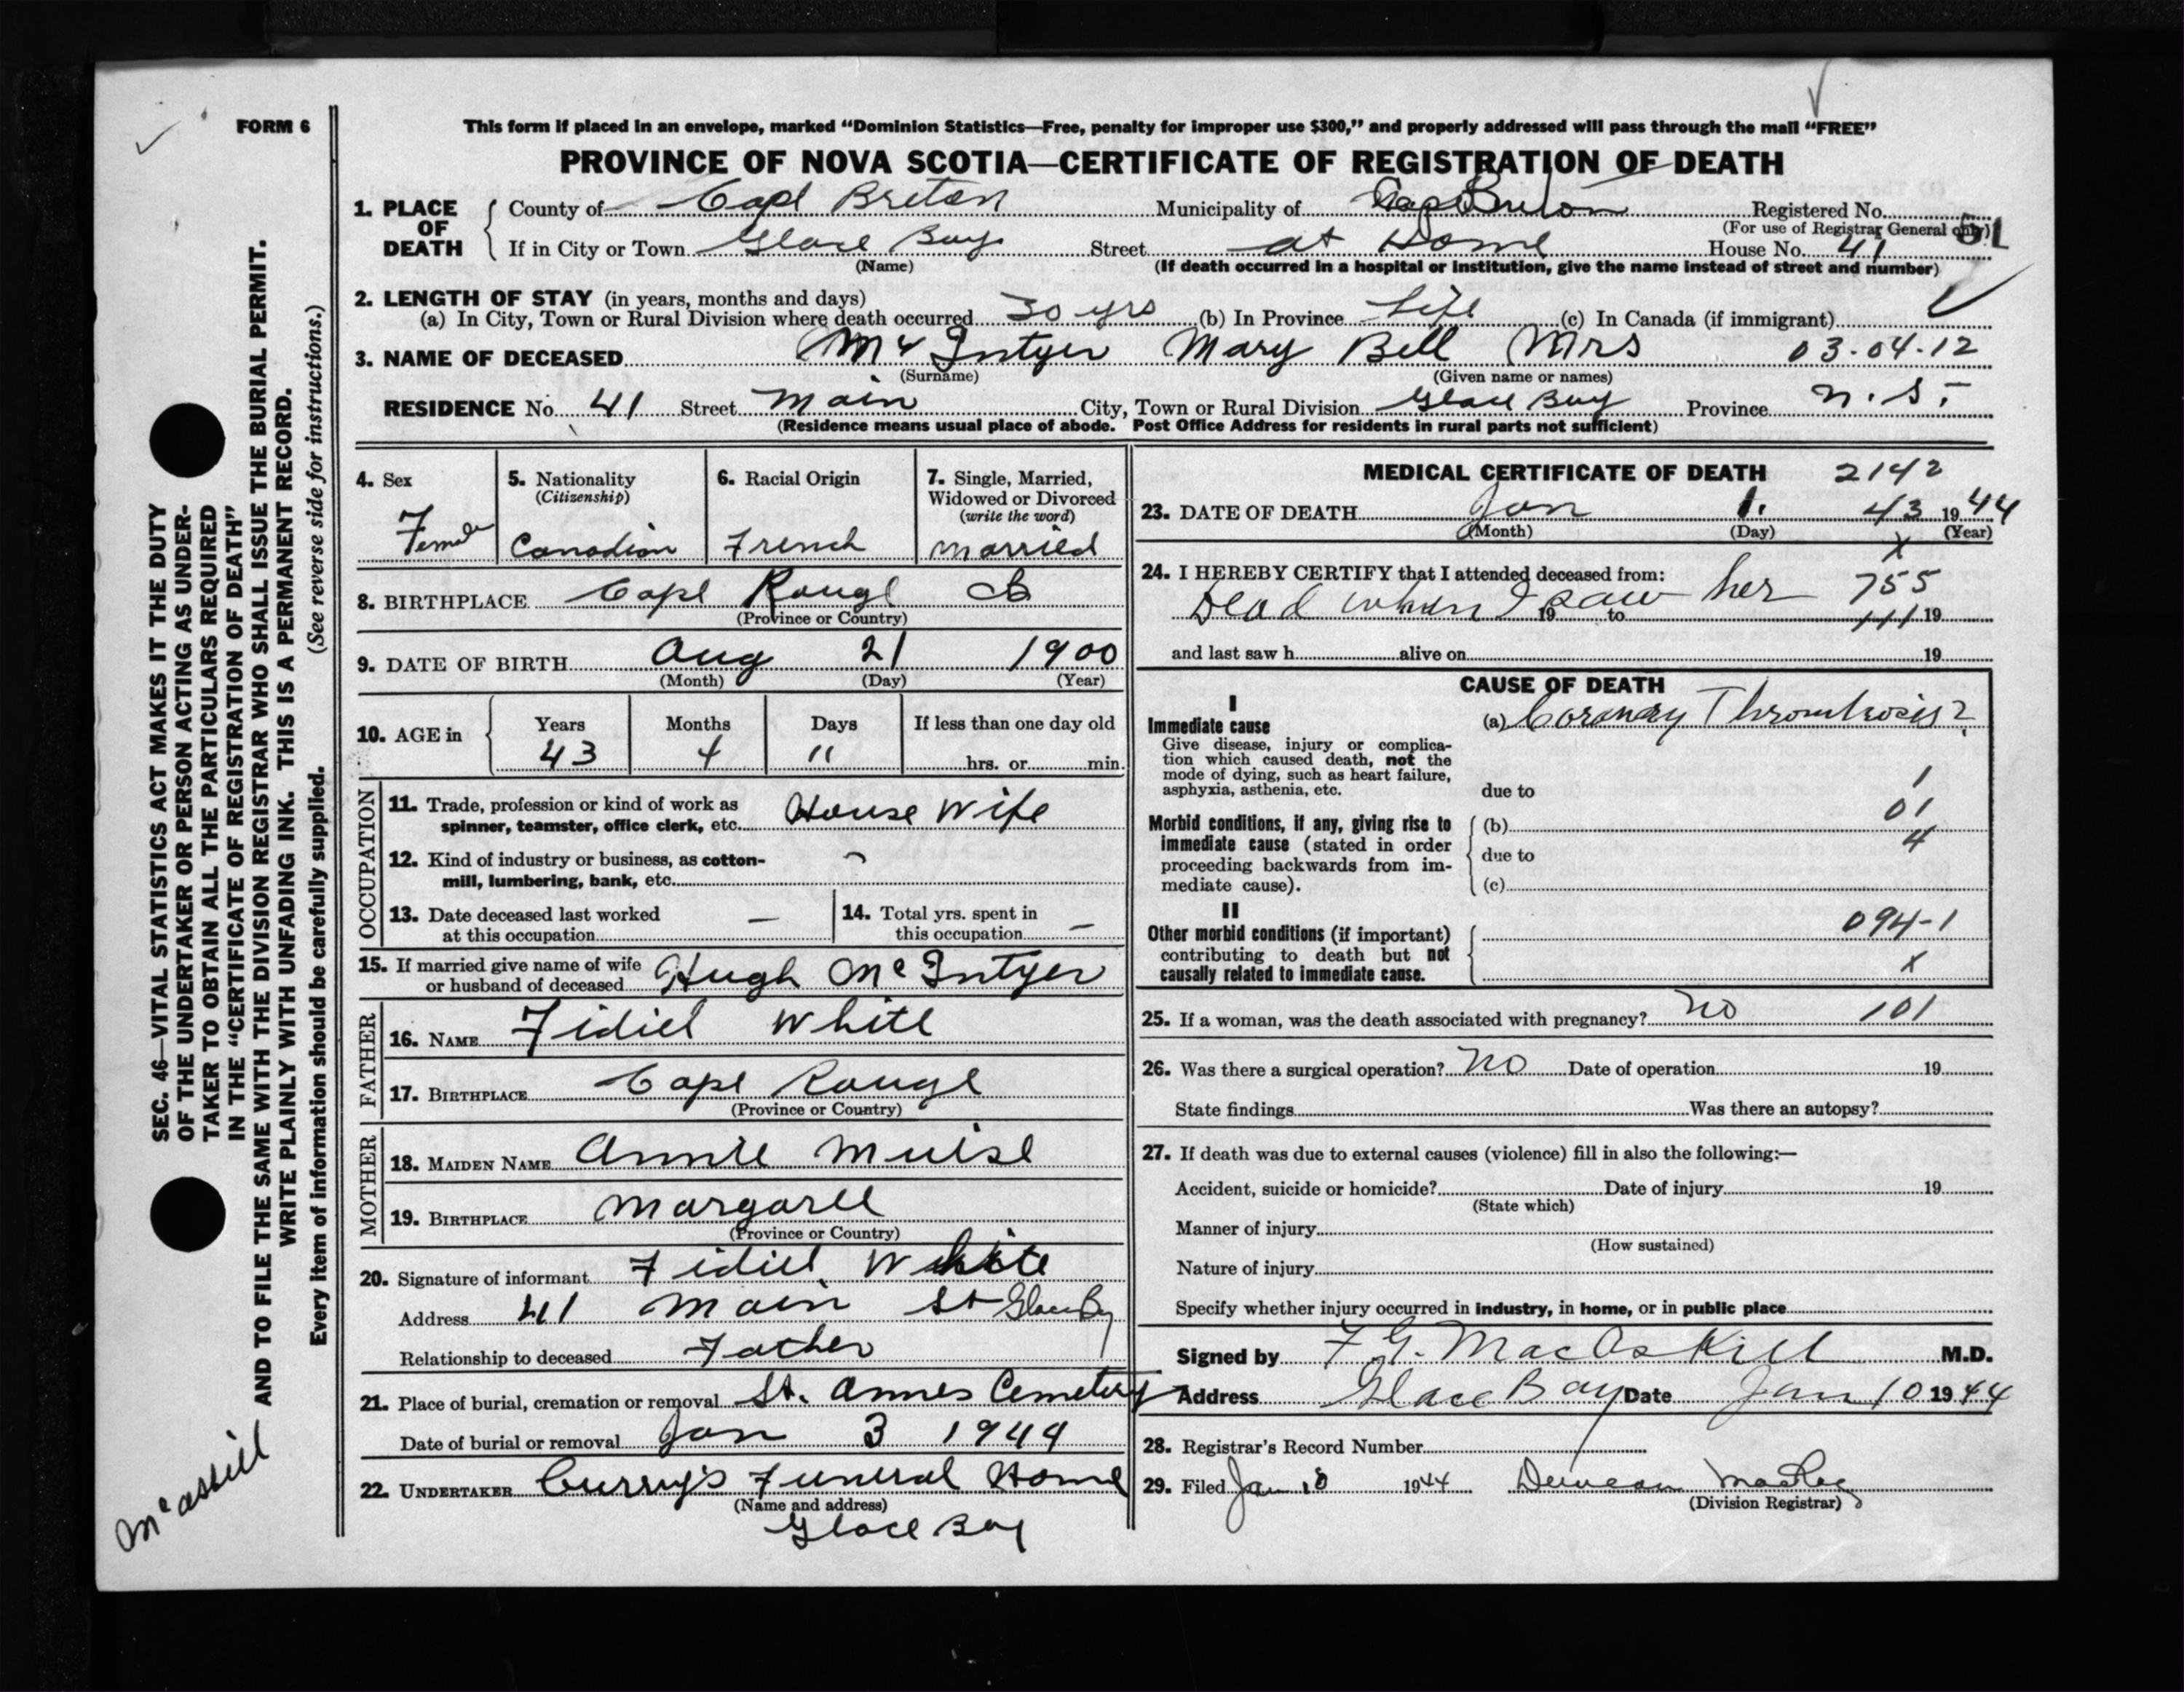 FORM 6
This form if placed in an envelope, marked "Dominion Statistics—Free, penalty for improper use $300," and properly addressed will pass through the mail "FREE"
PROVINCE OF NOVA SCOTIA—CERTIFICATE OF REGISTRATION OF DEATH
1. PLACE OF DEATH County of Cape Breton Municipality of Cape Breton Registered No.
(For use of Registrar General only) 51
If in City or Town Glace Bay Street at Home House No. 41
(Name) (If death occurred in a hospital or institution, give the name instead of street and number)
2. LENGTH OF STAY (in years, months and days)
(a) In City, Town or Rural Division where death occurred 30 yrs (b) In Province Life (c) In Canada (if immigrant)
3. NAME OF DECEASED Mc Intyer Mary Bell Mrs 03-04-12
(Surname) (Given name or names)
RESIDENCE No. 41 Street Main City, Town or Rural Division Glace Bay Province N.S.
(Residence means usual place of abode. Post Office Address for residents in rural parts not sufficient)
4. Sex Female
5. Nationality (Citizenship) Canadian
6. Racial Origin French
7. Single, Married, Widowed or Divorced (write the word) Married
8. BIRTHPLACE Cape Rouge CB
(Province or Country)
9. DATE OF BIRTH Aug 21 1900
(Month) (Day) (Year)
10. AGE in Years Months Days If less than one day old
43 4 11 hrs. or min.
OCCUPATION
11. Trade, profession or kind of work as
spinner, teamster, office clerk, etc. House Wife
12. Kind of industry or business, as cotton-
mill, lumbering, bank, etc.
13. Date deceased last worked
at this occupation —
14. Total yrs. spent in
this occupation —
15. If married give name of wife
or husband of deceased Hugh McIntyer
FATHER
16. NAME Fidiel White
17. BIRTHPLACE Cape Rouge
(Province or Country)
MOTHER
18. MAIDEN NAME Annie Muise
19. BIRTHPLACE Margaree
(Province or Country)
20. Signature of informant Fidiel White
Address 41 Main St Glace Bay
Relationship to deceased Father
21. Place of burial, cremation or removal St. Annes Cemetery
Date of burial or removal Jan 3 1944
22. UNDERTAKER Curry's Funeral Home
(Name and address)
Glace Bay
MEDICAL CERTIFICATE OF DEATH 2142
23. DATE OF DEATH Jan 1. 43 1944
(Month) (Day) X (Year)
24. I HEREBY CERTIFY that I attended deceased from: 755
Dead when I saw her 19 to 111 19
and last saw h alive on 19
CAUSE OF DEATH
I
Immediate cause (a) Coronary Thrombosis?
Give disease, injury or complica-
tion which caused death, not the
mode of dying, such as heart failure,
asphyxia, asthenia, etc. due to 1
01
Morbid conditions, if any, giving rise to (b)
immediate cause (stated in order 4
proceeding backwards from im- due to
mediate cause). (c)
II
Other morbid conditions (if important) 094-1
contributing to death but not
causally related to immediate cause. X
25. If a woman, was the death associated with pregnancy? No 101
26. Was there a surgical operation? No Date of operation 19
State findings Was there an autopsy?
27. If death was due to external causes (violence) fill in also the following:—
Accident, suicide or homicide? Date of injury 19
(State which)
Manner of injury
(How sustained)
Nature of injury
Specify whether injury occurred in industry, in home, or in public place
Signed by F G. MacAskill M.D.
Address Glace Bay Date Jan 10 1944
28. Registrar's Record Number
29. Filed Jan 10 1944 Duncan
(Division Registrar)
SEC. 46—VITAL STATISTICS ACT MAKES IT THE DUTY
OF THE UNDERTAKER OR PERSON ACTING AS UNDER-
TAKER TO OBTAIN ALL THE PARTICULARS REQUIRED
IN THE "CERTIFICATE OF REGISTRATION OF DEATH"
AND TO FILE THE SAME WITH THE DIVISION REGISTRAR WHO SHALL ISSUE THE BURIAL PERMIT.
WRITE PLAINLY WITH UNFADING INK. THIS IS A PERMANENT RECORD.
Every item of information should be carefully supplied. (See reverse side for instructions.)
McAskill